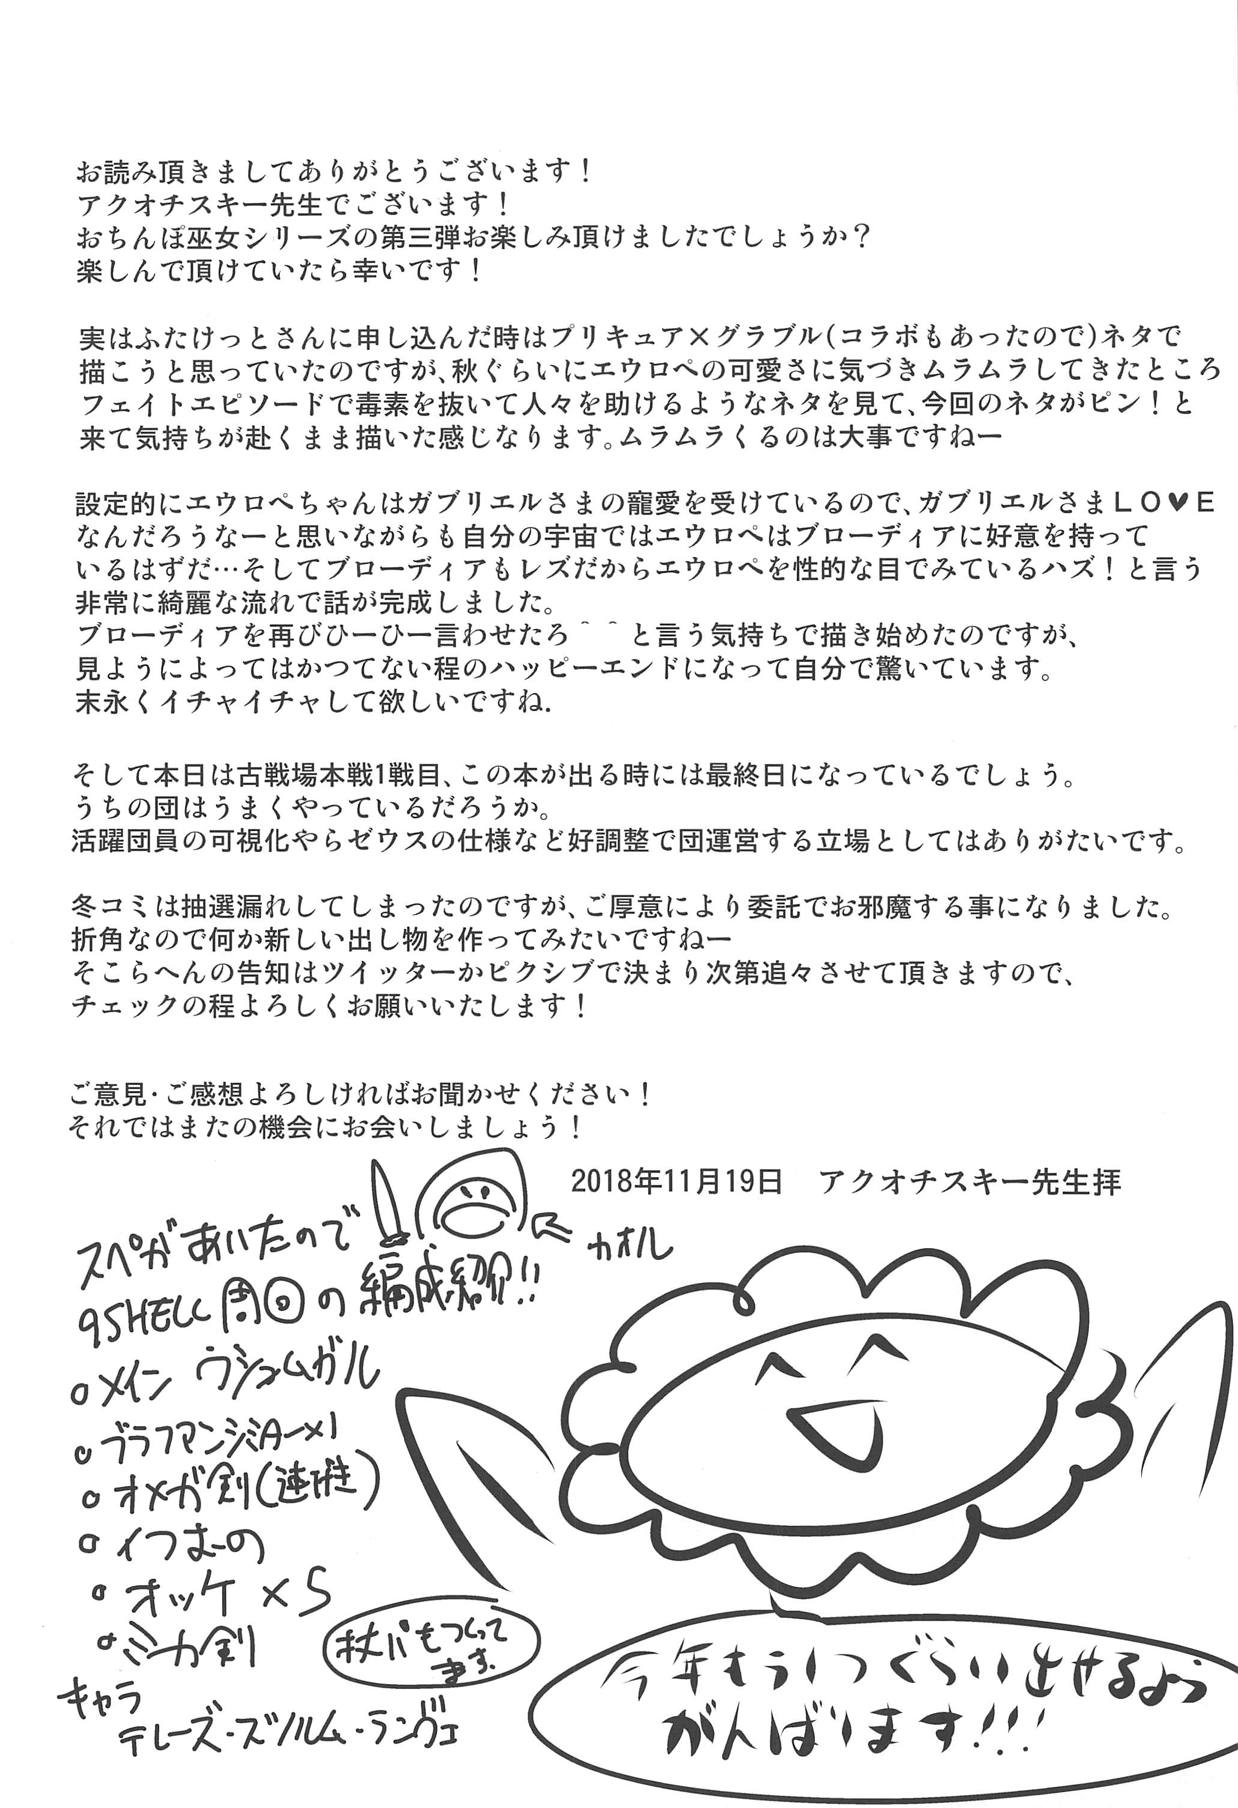 お読み頂きましてありがとうございます！
アクオチスキー先生でございます！
おちんぽ巫女シリーズの第三弾お楽しみ頂けましたでしょうか？
楽しんで頂けていたら幸いです！
実はふたけっとさんに申し込んだ時はプリキュア×グラブル(コラボもあったので)ネタで
描こうと思っていたのですが、秋ぐらいにエウロペの可愛さに気づきムラムラしてきたところ
フェイトエピソードで毒素を抜いて人々を助けるようなネタを見て、今回のネタがピン！と
来て気持ちが赴くまま描いた感じなります。ムラムラくるのは大事ですねー
設定的にエウロペちゃんはガブリエルさまの寵愛を受けているので、ガブリエルさまＬＯ♥Ｅ
なんだろうなーと思いながらも自分の宇宙ではエウロペはブローディアに好意を持って
いるはずだ…そしてブローディアもレズだからエウロペを性的な目でみているハズ！と言う
非常に綺麗な流れで話が完成しました。
ブローディアを再びひーひー言わせたろ＾＾と言う気持ちで描き始めたのですが、
見ようによってはかつてない程のハッピーエンドになって自分で驚いています。
末永くイチャイチャして欲しいですね.
そして本日は古戦場本戦1戦目、この本が出る時には最終日になっているでしょう。
うちの団はうまくやっているだろうか。
活躍団員の可視化やらゼウスの仕様など好調整で団運営する立場としてはありがたいです。
冬コミは抽選漏れしてしまったのですが、ご厚意により委託でお邪魔する事になりました。
折角なので何か新しい出し物を作ってみたいですねー
そこらへんの告知はツイッターかピクシブで決まり次第追々させて頂きますので、
チェックの程よろしくお願いいたします！
ご意見・ご感想よろしければお聞かせください！
それではまたの機会にお会いしましょう！
2018年11月19日　アクオチスキー先生拝
カオル
スペがあいたので
9SHELL周回の編成紹介!!
○メイン ウシュムガル
○ブラフマンシミター×1
○オメガ剣(連撃)
○イつおーの
○オッケ×5
○ミカ剣
杖パもつくって
ます.
キャラ
テレーズ・ズノルム・ランヴェ
今年もう1つぐらい出せるよう
がんばります!!!